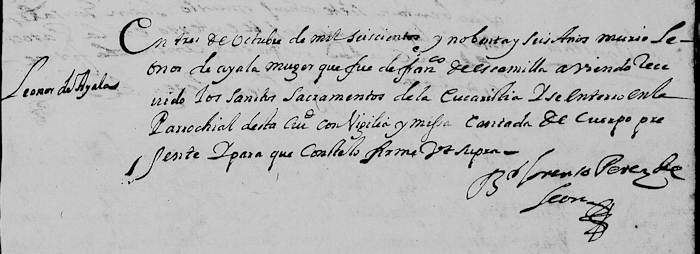 En tres de Octubre de mil seiscientos y nobenta y seis Años murio Le-
Leonor de Ayala
onor de ayala muger que fue de fran.co de escamilla aviendo rece-
uido los santos Sacramentos de la Eucaristia Y se enterro en la
Parrochial desta Ciud con Vigilia y missa Cantada de Cuerpo pre-
sente Y para que Conste lo firme Vt supra
Br Lorenso Perez de
Leon